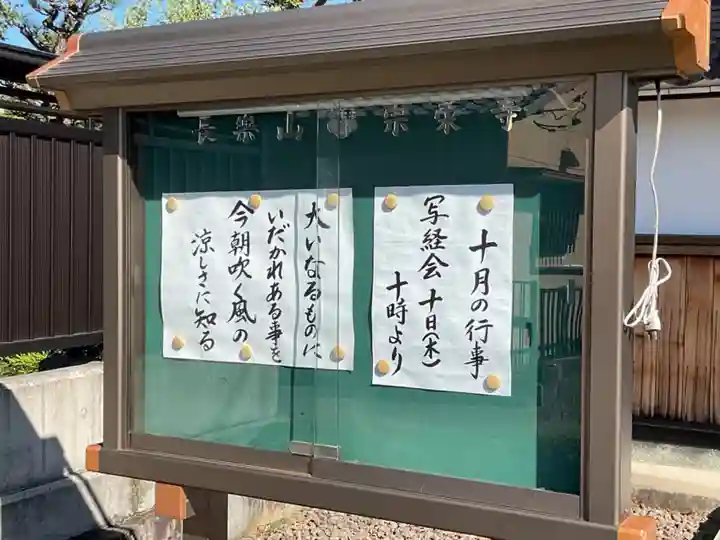 長樂山
十月の行事
写経会 十日(木)
十時より
大いなるものに
いだかれある事を
今朝吹く風の
涼しさに知る